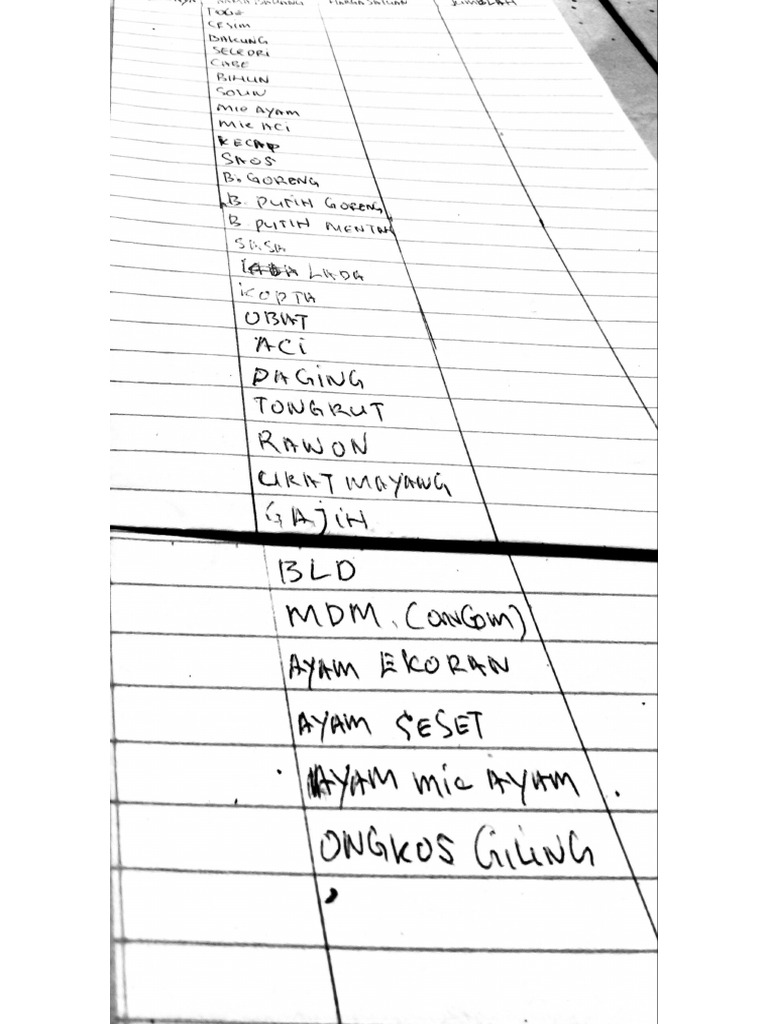 NAMA BARANG HARGA SATUAN JUMLAH
TOGE
CESIM
BAKUNG
SELEDRI
CABE
BIHUN
SOUN
MIE AYAM
MIE ACI
KECAP
SAOS
B. GORENG
B. PUTIH GORENG
B PUTIH MENTAH
SASA
LADA
KOPTA
OBAT
ACI
DAGING
TONGKUT
RAWON
URAT MAYANG
GAJIH
BLD
MDM. (ONGOM)
AYAM EKORAN
AYAM SESET
AYAM MIE AYAM
ONGKOS GILING